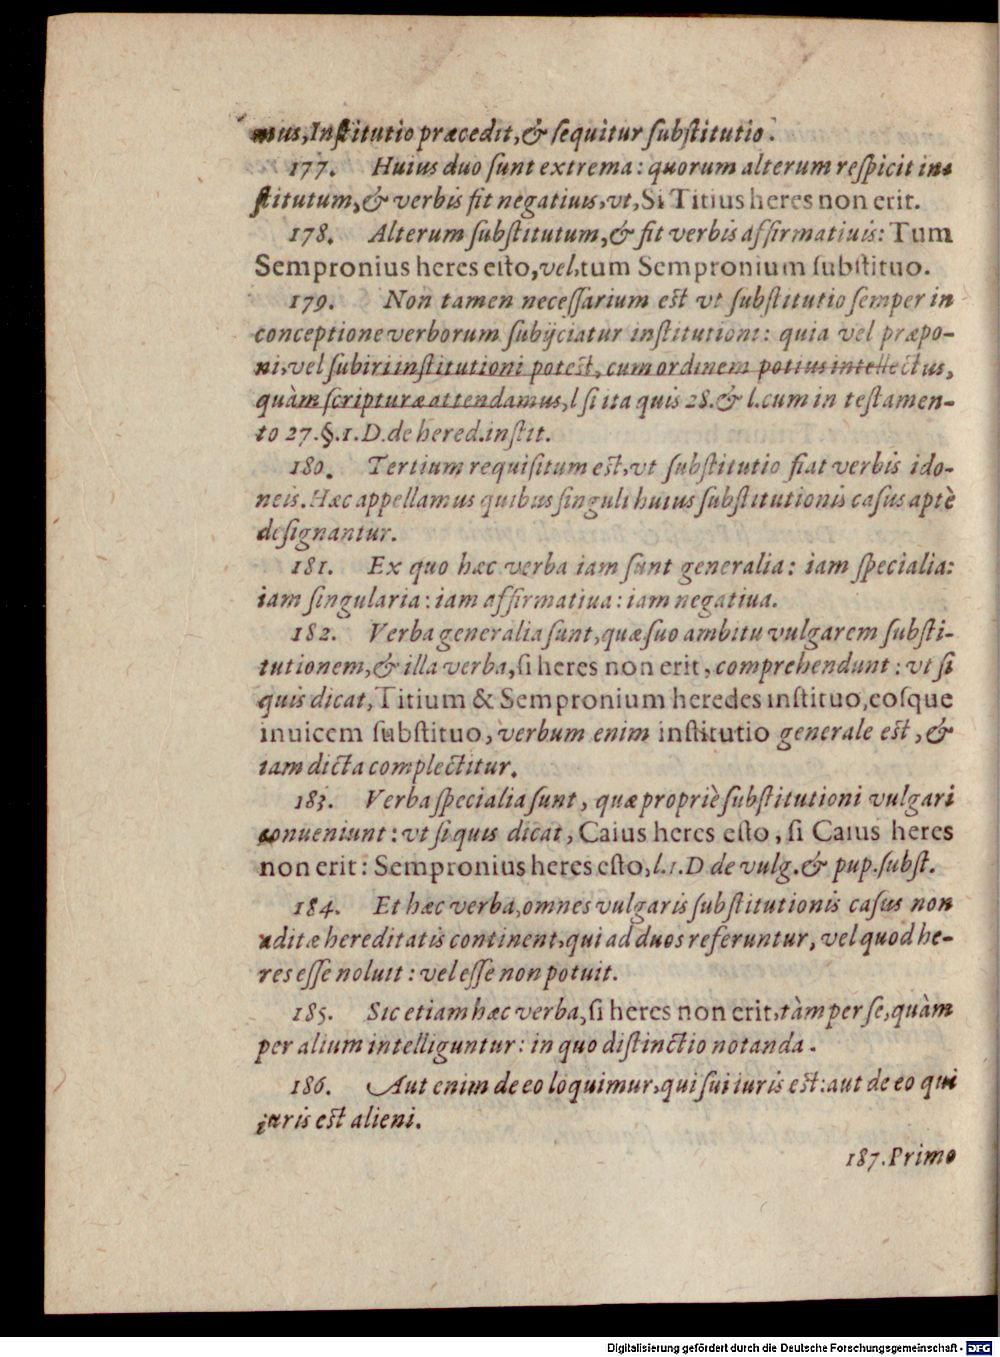 mus, Institutio præcedit, & sequitur substitutio.
177. Huius duo sunt extrema: quorum alterum respicit in-
stitutum, & verbis fit negatiuis, vt, Si Titius heres non erit.
178. Alterum substitutum, & fit verbis affirmatiuis: Tum
Sempronius heres esto, vel, tum Sempronium substituo.
179. Non tamen necessarium est vt substitutio semper in
conceptione verborum subijciatur institutioni: quia vel præpo-
ni, vel subiri institutioni potest, cum ordinem potius intellectus,
quàm scripturæ attendamus, l si ita quis 28. & l. cum in testamen-
to 27. §. 1. D. de hered. instit.
180. Tertium requisitum est, vt substitutio fiat verbis ido-
neis. Hæc appellamus quibus singuli huius substitutionis casus aptè
designantur.
181. Ex quo hæc verba iam sunt generalia: iam specialia:
iam singularia: iam affirmatiua: iam negatiua.
182. Verba generalia sunt, quæ suo ambitu vulgarem substi-
tutionem, & illa verba, si heres non erit, comprehendunt: vt si
quis dicat, Titium & Sempronium heredes instituo, eosque
inuicem substituo, verbum enim institutio generale est, &
iam dicta complectitur.
183. Verba specialia sunt, quæ propriè substitutioni vulgari
conueniunt: vt si quis dicat, Caius heres esto, si Caius heres
non erit: Sempronius heres esto, l. 1. D de vulg. & pup. subst.
184. Et hæc verba, omnes vulgaris substitutionis casus non
aditæ hereditatis continent, qui ad duos referuntur, vel quod he-
res esse noluit: vel esse non potuit.
185. Sic etiam hæc verba, si heres non erit, tàm per se, quàm
per alium intelliguntur: in quo distinctio notanda.
186. Aut enim de eo loquimur, qui sui iuris est: aut de eo qui
iuris est alieni.
187. Primo
Digitalisierung gefördert durch die Deutsche Forschungsgemeinschaft - DFG